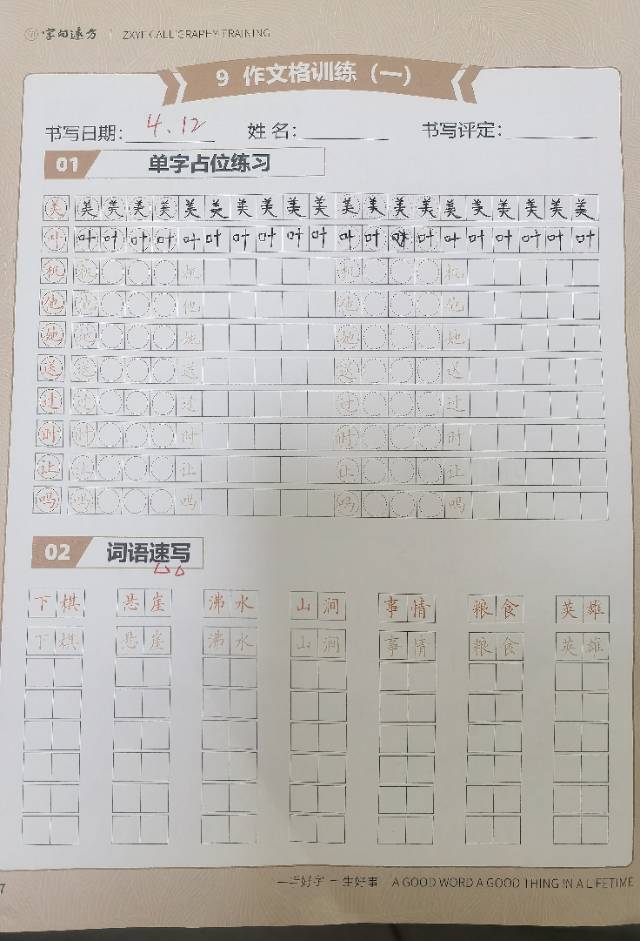 字由速方 ZXYF CALLIGRAPHY TRAINING
9 作文格训练（一）
书写日期: 4.12 姓名: 书写评定:
01 单字占位练习
美 美 美 美 美 美 美 美 美 美 美 美 美 美 美 美 美 美 美 美
叶 叶 叶 叶 叶 叶 叶 叶 叶 叶 叶 叶 叶 叶 叶 叶 叶 叶 叶 叶
机 机 机 机 机
他 他 他 他 他
她 她 她 她 她
送 送 送 送 送
过 过 过 过 过
时 时 时 时
让 让 让 让 让
吗 吗 吗 吗 吗
02 词语速写
下棋 悬崖 沸水 山涧 事情 粮食 英雄
下棋 悬崖 沸水 山涧 事情 粮食 英雄
7 一手好字 一生好事 A GOOD WORD A GOOD THING IN A LIFETIME